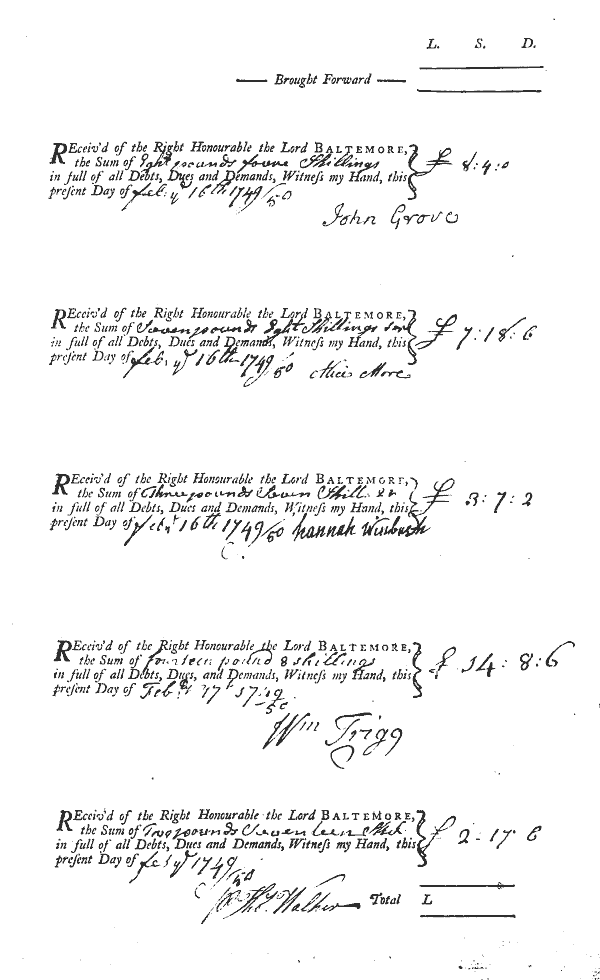 L. S. D.
Brought Forward
REceiv'd of the Right Honourable the Lord BALTEMORE,
the Sum of Eght pounds foure Shillings £ 8:4:0
in full of all Debts, Dues and Demands, Witness my Hand, this
present Day of feb: ye 16th 1749/50
John Grove
REceiv'd of the Right Honourable the Lord BALTEMORE,
the Sum of Sevenpounds Eght Shillings £ 7:18:6
in full of all Debts, Dues and Demands, Witness my Hand, this
present Day of feb: ye 16th 1749/50 Alice More
REceiv'd of the Right Honourable the Lord BALTEMORE,
the Sum of Threepounds Seven Shill £ 3:7:2
in full of all Debts, Dues and Demands, Witness my Hand, this
present Day of feb: ye 16th 1749/50 hannah
REceiv'd of the Right Honourable the Lord BALTEMORE,
the Sum of fourteen pound 8 shillings £ 14:8:6
in full of all Debts, Dues, and Demands, Witness my Hand, this
present Day of Feb: ye 17th 1749/50
Wm Trigg
REceiv'd of the Right Honourable the Lord BALTEMORE,
the Sum of Twopounds Seventeen Shil £ 2-17-6
in full of all Debts, Dues and Demands, Witness my Hand, this
present Day of feb ye 1749/50
Walker Total L